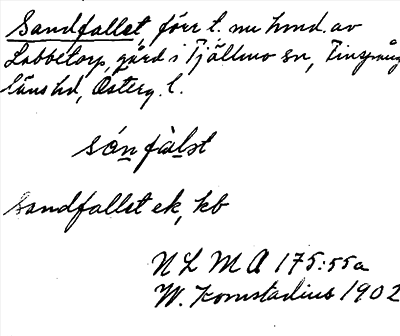 Sandfallet, förr l. nu hmd. av
Lobbetorp, gård i Tjällmo sn, Finspång
läns hd, Österg. l.
sánfàlst
Sandfallet ek, kb
N L M A 175:55a
W. Komstadius 1902